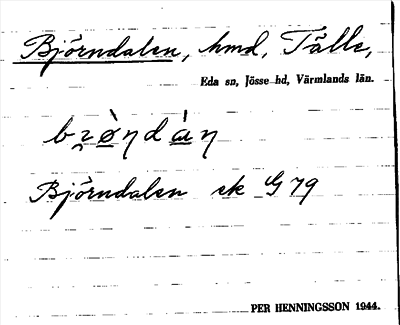 Björndalen, hmd, Tälle,
Eda sn, Jösse hd, Värmlands län.
Björndalen ek G 79
PER HENNINGSSON 1944.